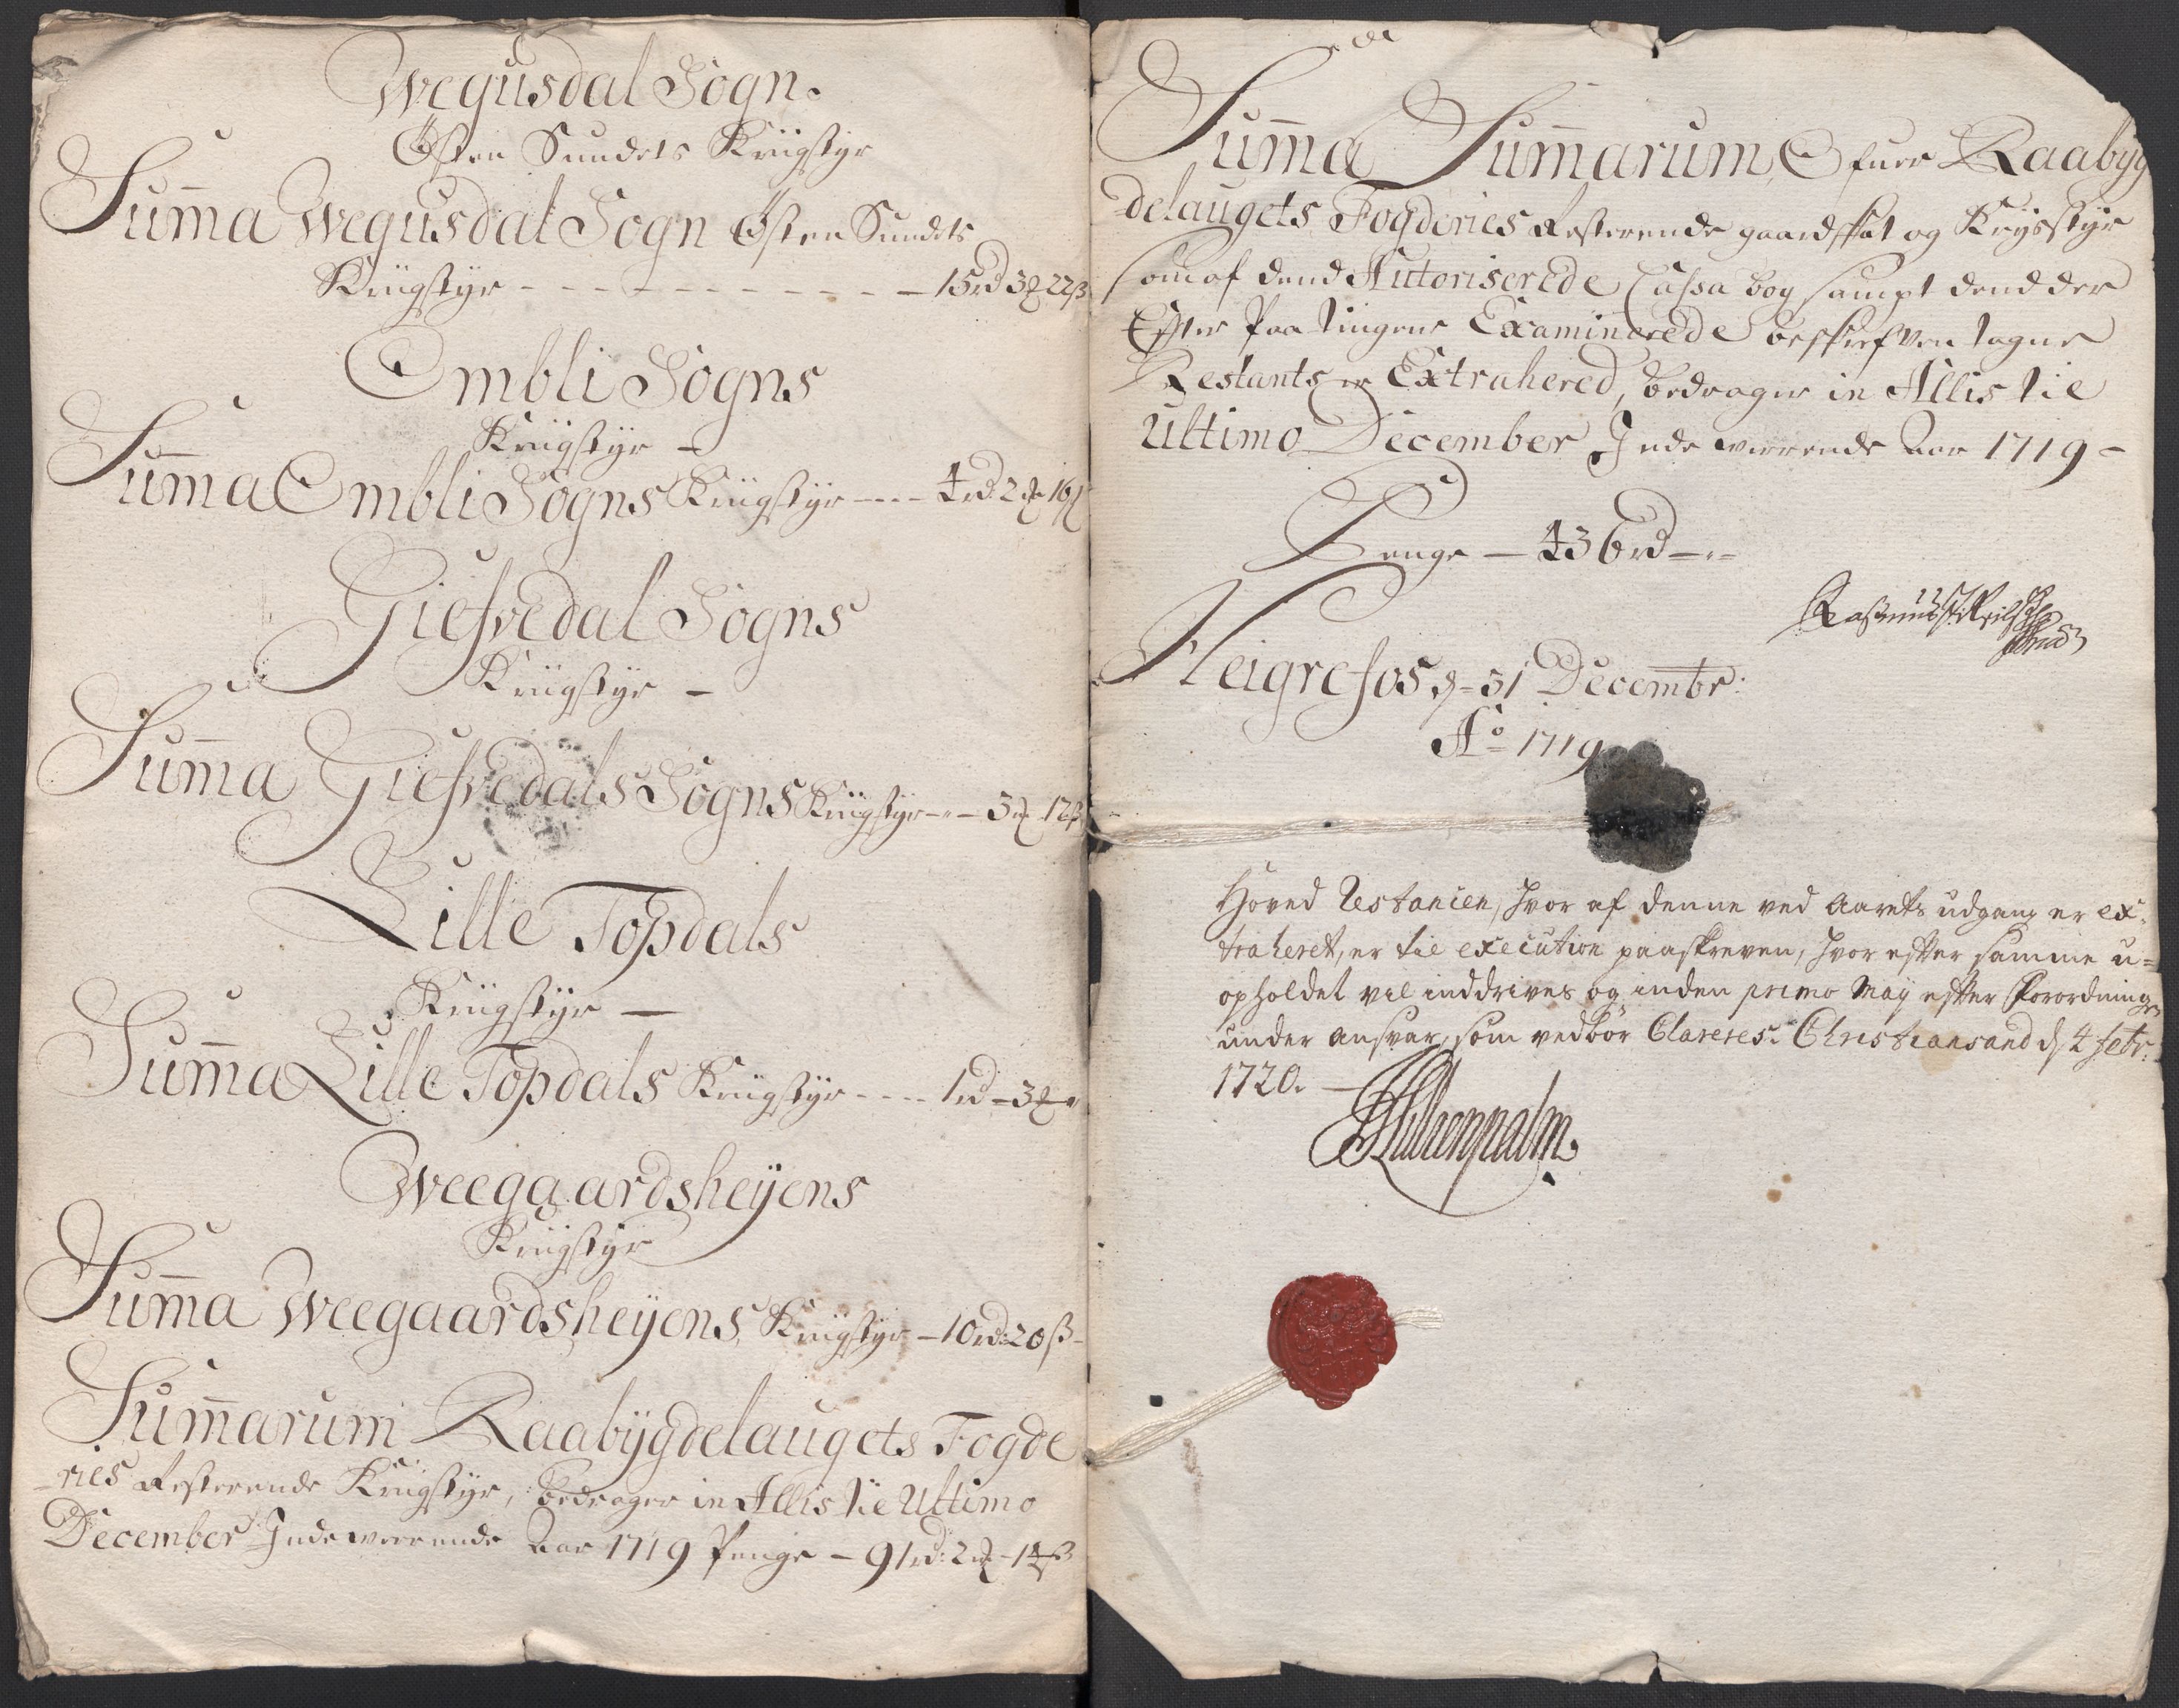 Wegusdal Sogn.
Østen Sundets Krigstyr
Suma Wegusdal Sogn Østen Sundets
Krigstyr - - - - - - - - - - - 15rd 3 22ß
Embli Sogns
Krigstyr -
Suma Embli Sogns Krigstyr - - - 4rd: 2 16ß
Giefvedal Sogns
Krigstyr -
Suma Giefvedals Sogns Krigstyr - - - 3 12ß
Lille Topdals
Krigstyr -
Suma Lille Topdals Krigstyr - - - - 1rd - 3
Weegaardsheyens
Krigstyr
Suma Weegaardsheyens Krigstyr - 10rd: 20ß -
Sumarum Raabygdelaugets Fogde
-ries Resterende Krigstyr, bedrager in Allis til Ultimo
December Indeverende Aar 1719 Penge - 91rd: 2 - 14ß
Suma Sumarum, Ofver Raabyg
-delaugets Fogderies Resterende gaardskat og Krigstyr
som af dend Autoriserede Cassa bog sampt dend der
Efter Paa tingene Examinerede beskrefven tagne
Restants er Extrahered, bedrager in Allis til
Ultimo December Indeverende Aar 1719 -
Penge - 436rd - " -
Heigrefos d- 31 Decembr:
Ao 1719
Hoved Restancen, hvor af denne ved Aarets udgang er ex-
traheret, er til execution paaskreven, hvor efter samme u-
opholdet vil inddrives og inden primo May efter Forordningen
under ansvar, som vedbør Clareres. Christiansand d 4 febr:
1720. -